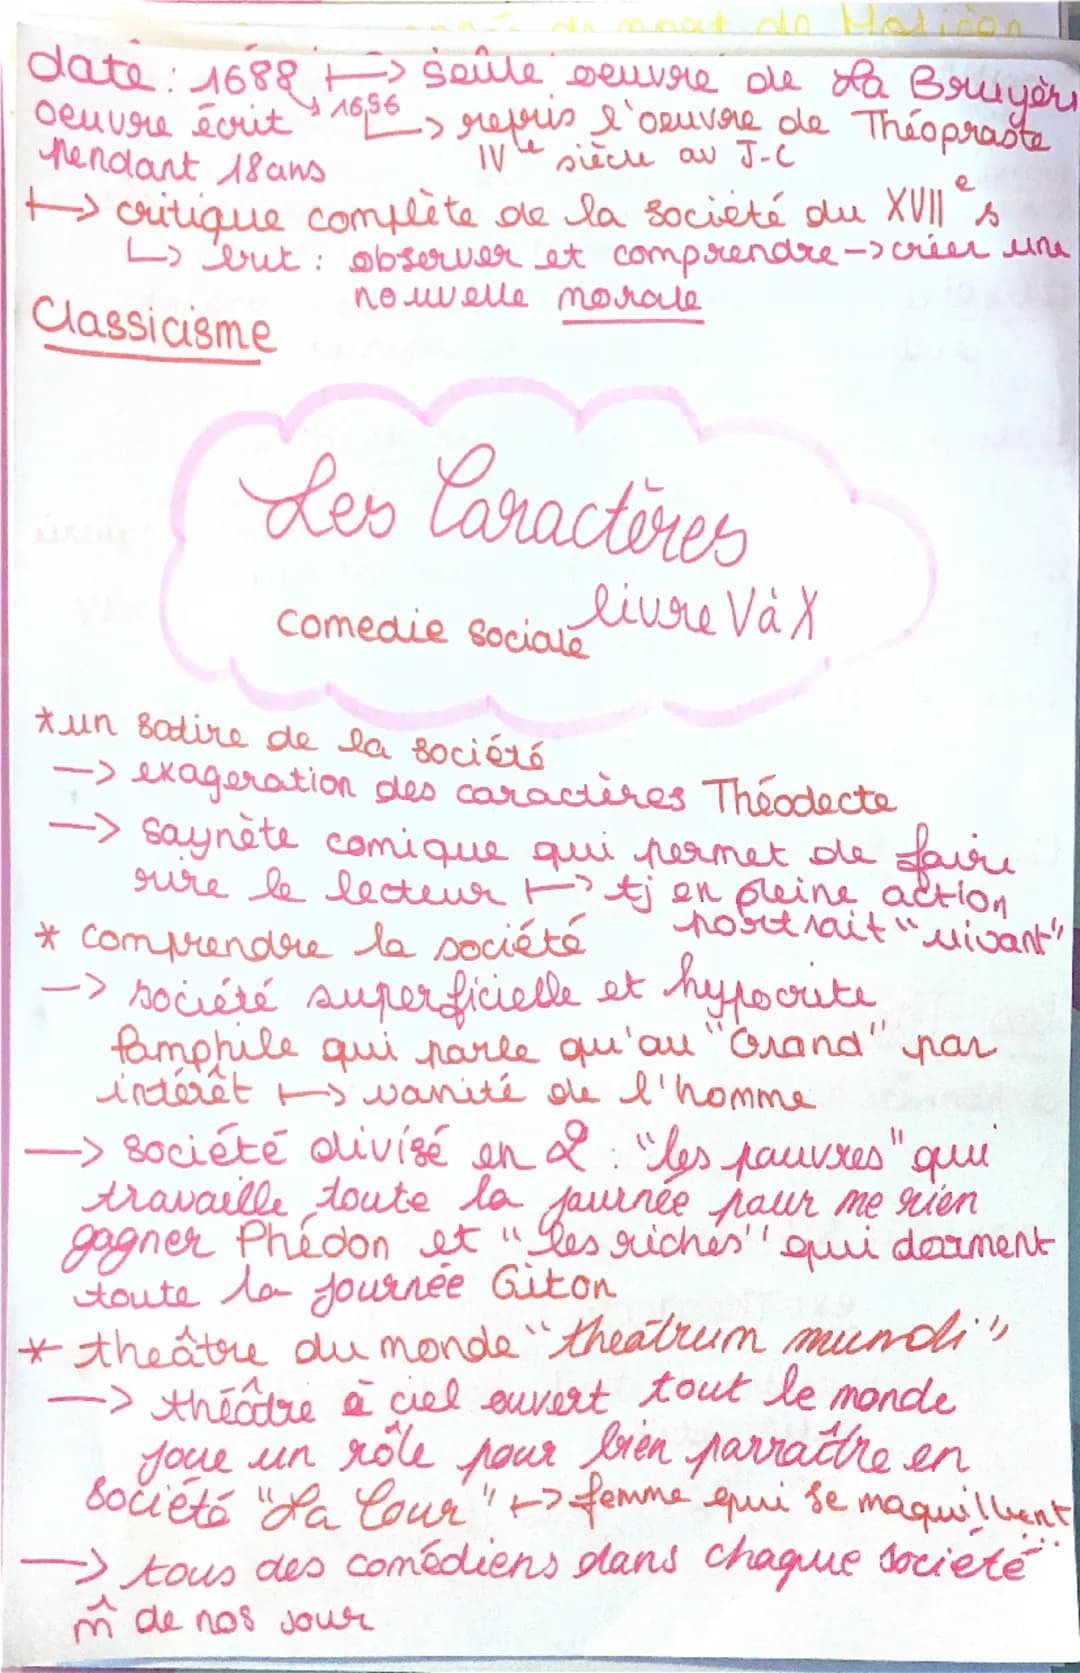 de mort de Molière
date : 1688 ↦ seule oeuvre de La Bruyère
oeuvre écrit ↳ 1696 ↳ repris l'oeuvre de Théopraste
pendant 18ans IVe siècle av J-C
↦ critique complète de la société du XVIIe s
↳ but : observer et comprendre -> créer une
nouvelle morale
Classicisme
Les Caractères
livre V à X
comedie sociale
* un satire de la société
-> exageration des caractères Théodecte
-> saynète comique qui permet de faire
rire le lecteur ↦ tj en pleine action
portrait "vivant"
* comprendre la société
-> société superficielle et hypocrite
Pamphile qui parle qu'au "Grand" par
intérêt ↦ vanité de l'homme
-> société divisé en 2 : "les pauvres" qui
travaille toute la journée pour ne rien
gagner Phédon et "les riches" qui dorment
toute la journée Giton
* theâtre du monde "theatrum mundi"
-> théâtre à ciel ouvert tout le monde
joue un rôle pour bien parraître en
société "La Cour" ↦ femme qui se maquillent
-> tous des comédiens dans chaque société
m̂ de nos jour